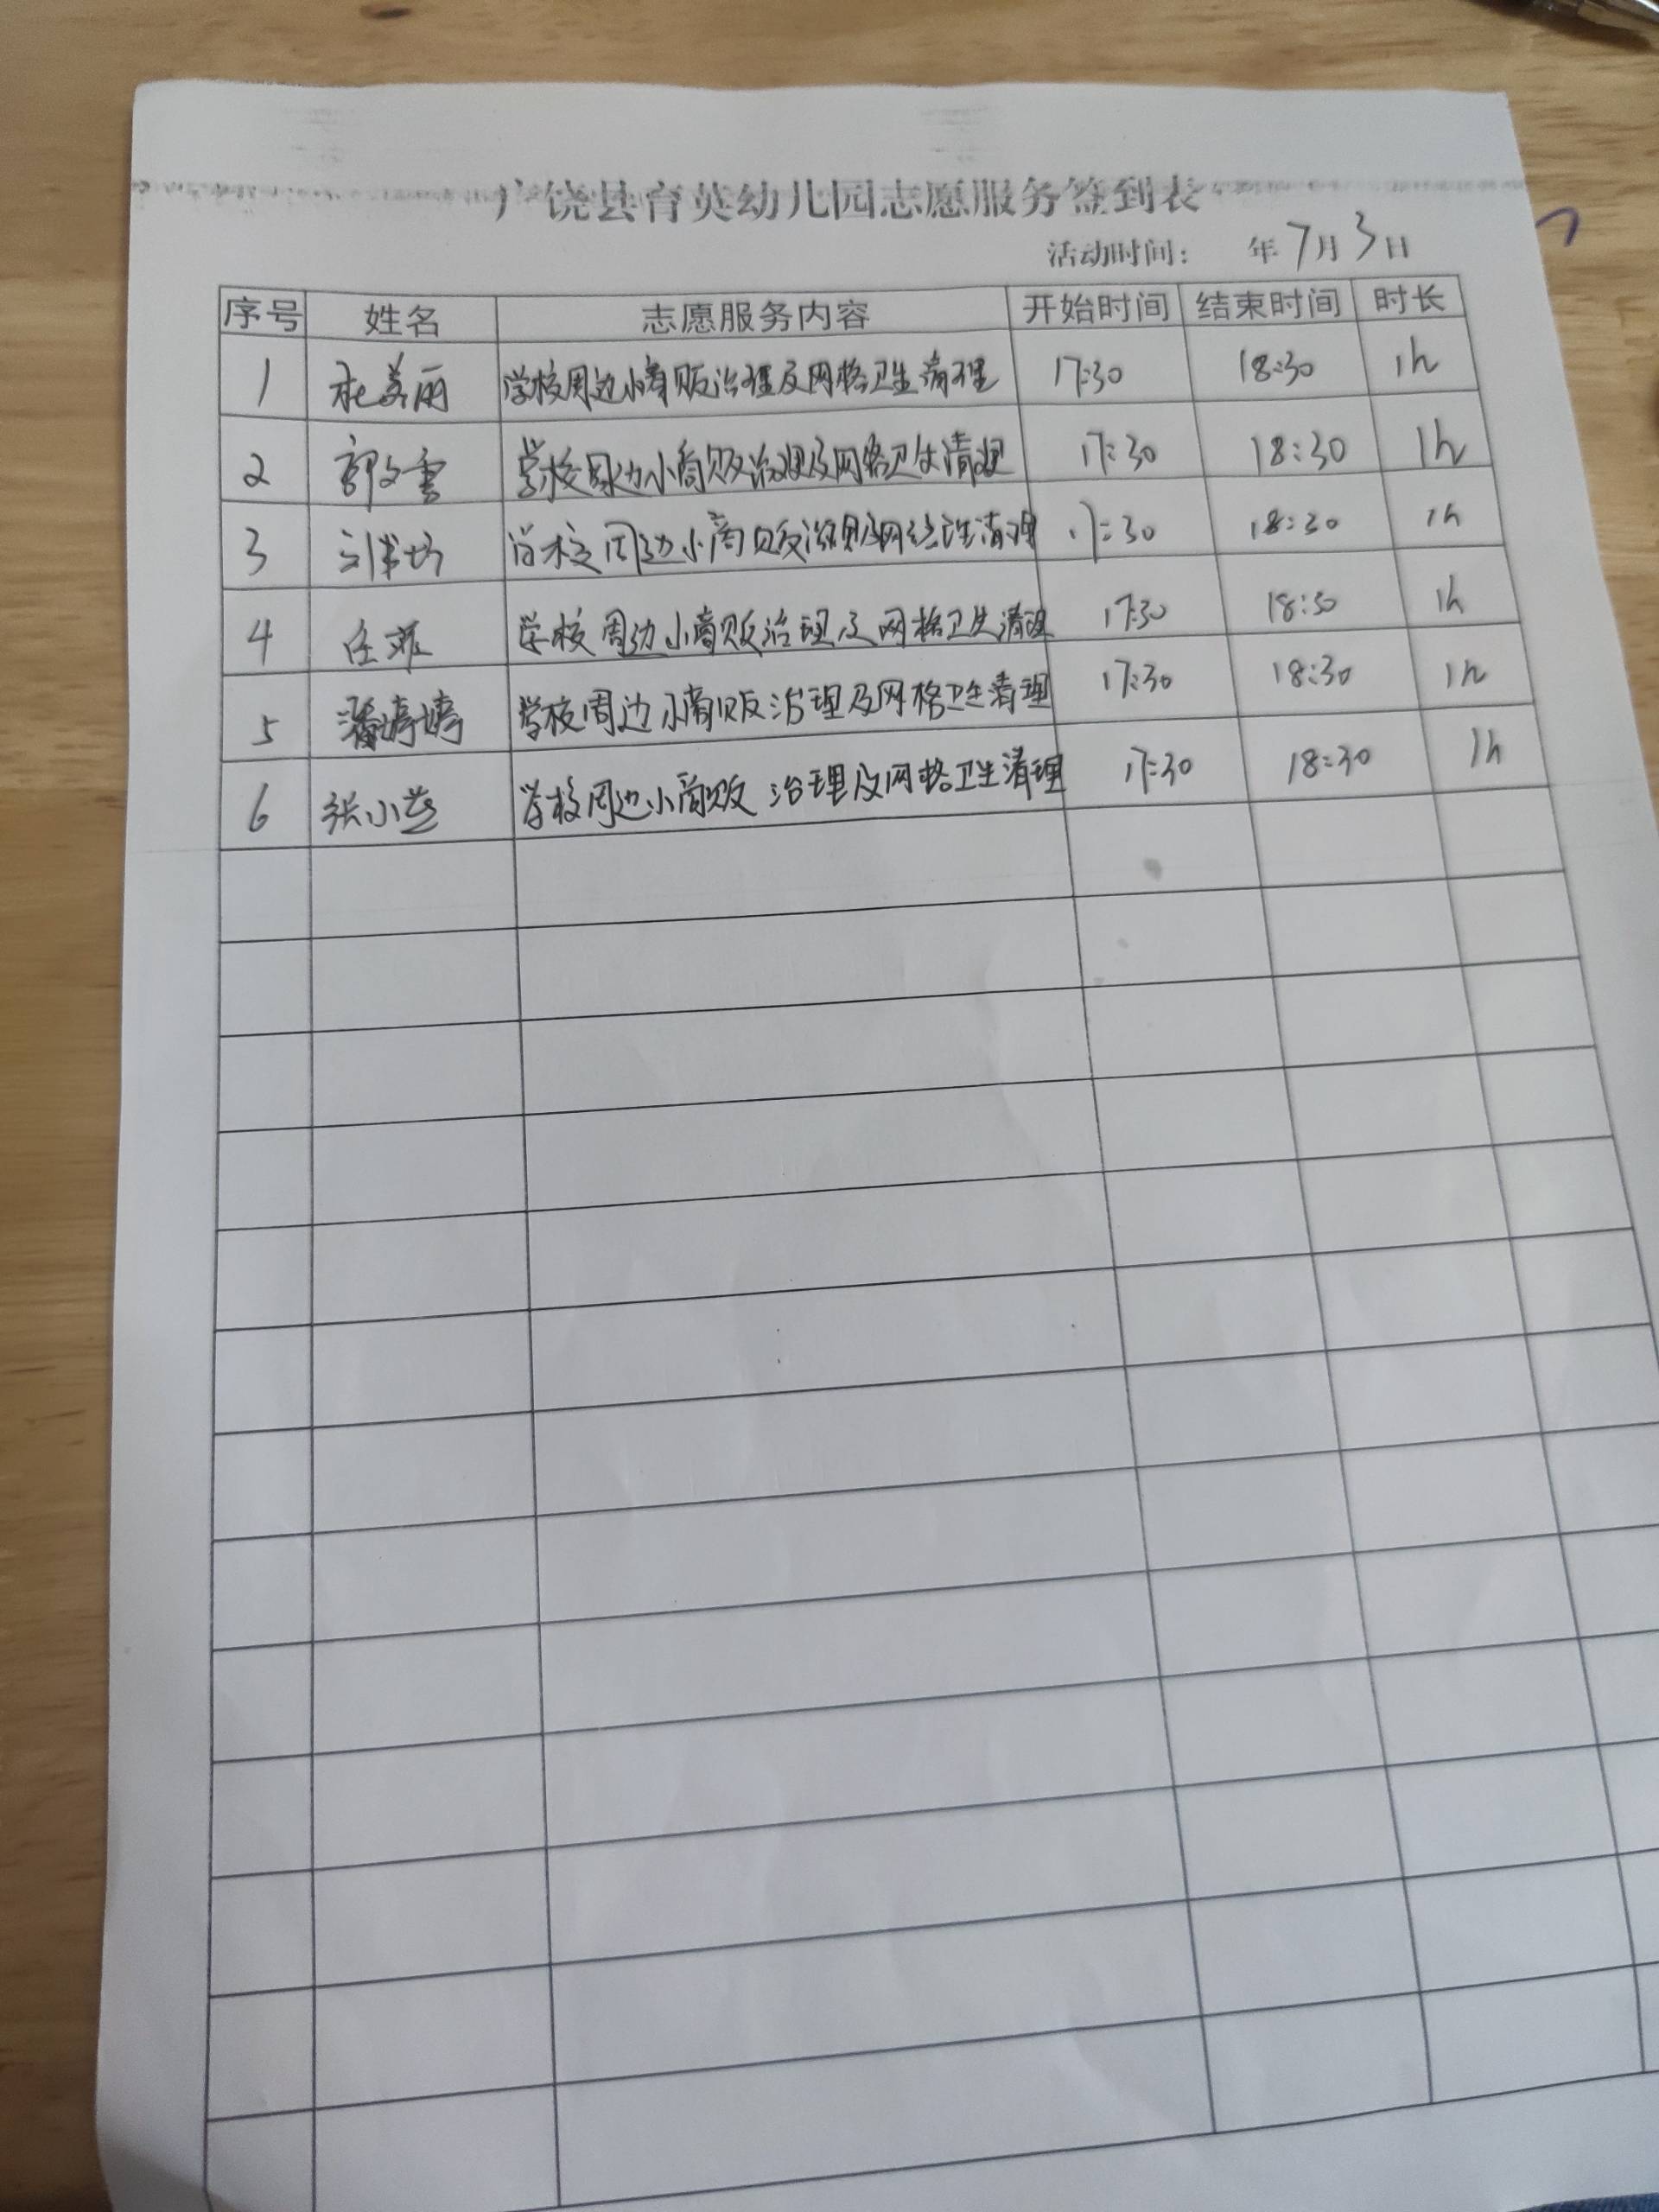 广饶县育英幼儿园志愿服务签到表
活动时间： 年7月3日
序号 姓名 志愿服务内容 开始时间 结束时间 时长
1 杜美丽 学校周边小商贩治理及网格卫生清理 17:30 18:30 1h
2 郭文 学校周边小商贩治理及网格卫生清理 17:30 18:30 1h
3 学校周边小商贩治理及网格卫生清理 17:30 18:30 1h
4 任 学校周边小商贩治理及网格卫生清理 17:30 18:30 1h
5 潘婷婷 学校周边小商贩治理及网格卫生清理 17:30 18:30 1h
6 张小燕 学校周边小商贩治理及网格卫生清理 17:30 18:30 1h